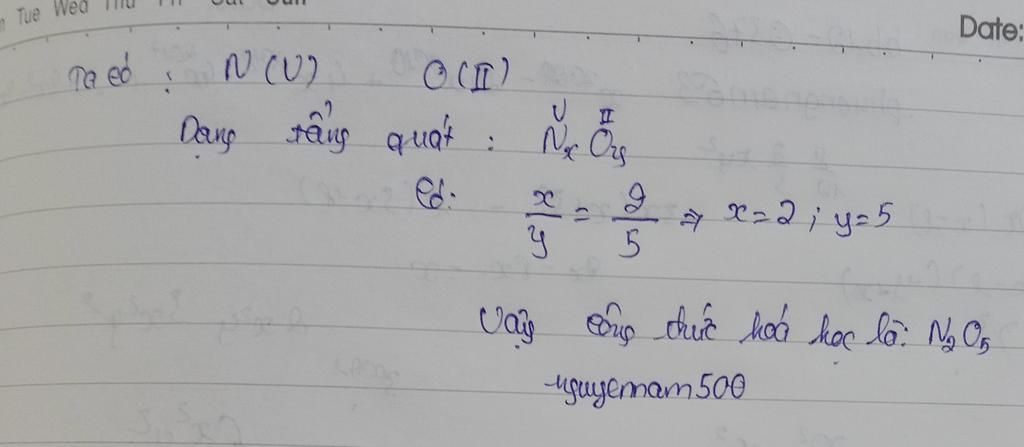 Tue Wed Thu Fri Sat Sun
Date:
Ta có : N (V) O (II)
Dạng tổng quát : NₓOᵧ
V II
Có: x/y = 2/5 ⇒ x=2 ; y=5
Vậy công thức hoá học là: N₂O₅
nguyemam500